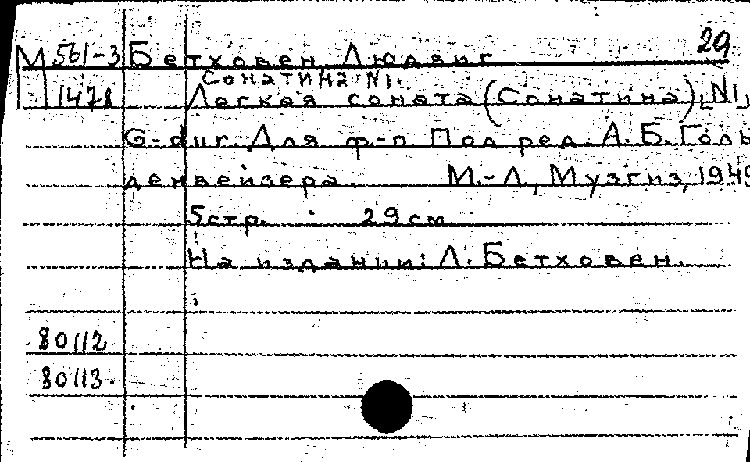 29
М 561-3 Бетховен, Людвиг
Сонатина N1.
1478 Легкая соната (Сонатина), N1,
G-dur. Для ф-п Под ред. А.Б. Голь
денвейзера. М.-Л., Музгиз, 1949
5 стр. 29 см
На издании: Л. Бетховен.
80112
80113.